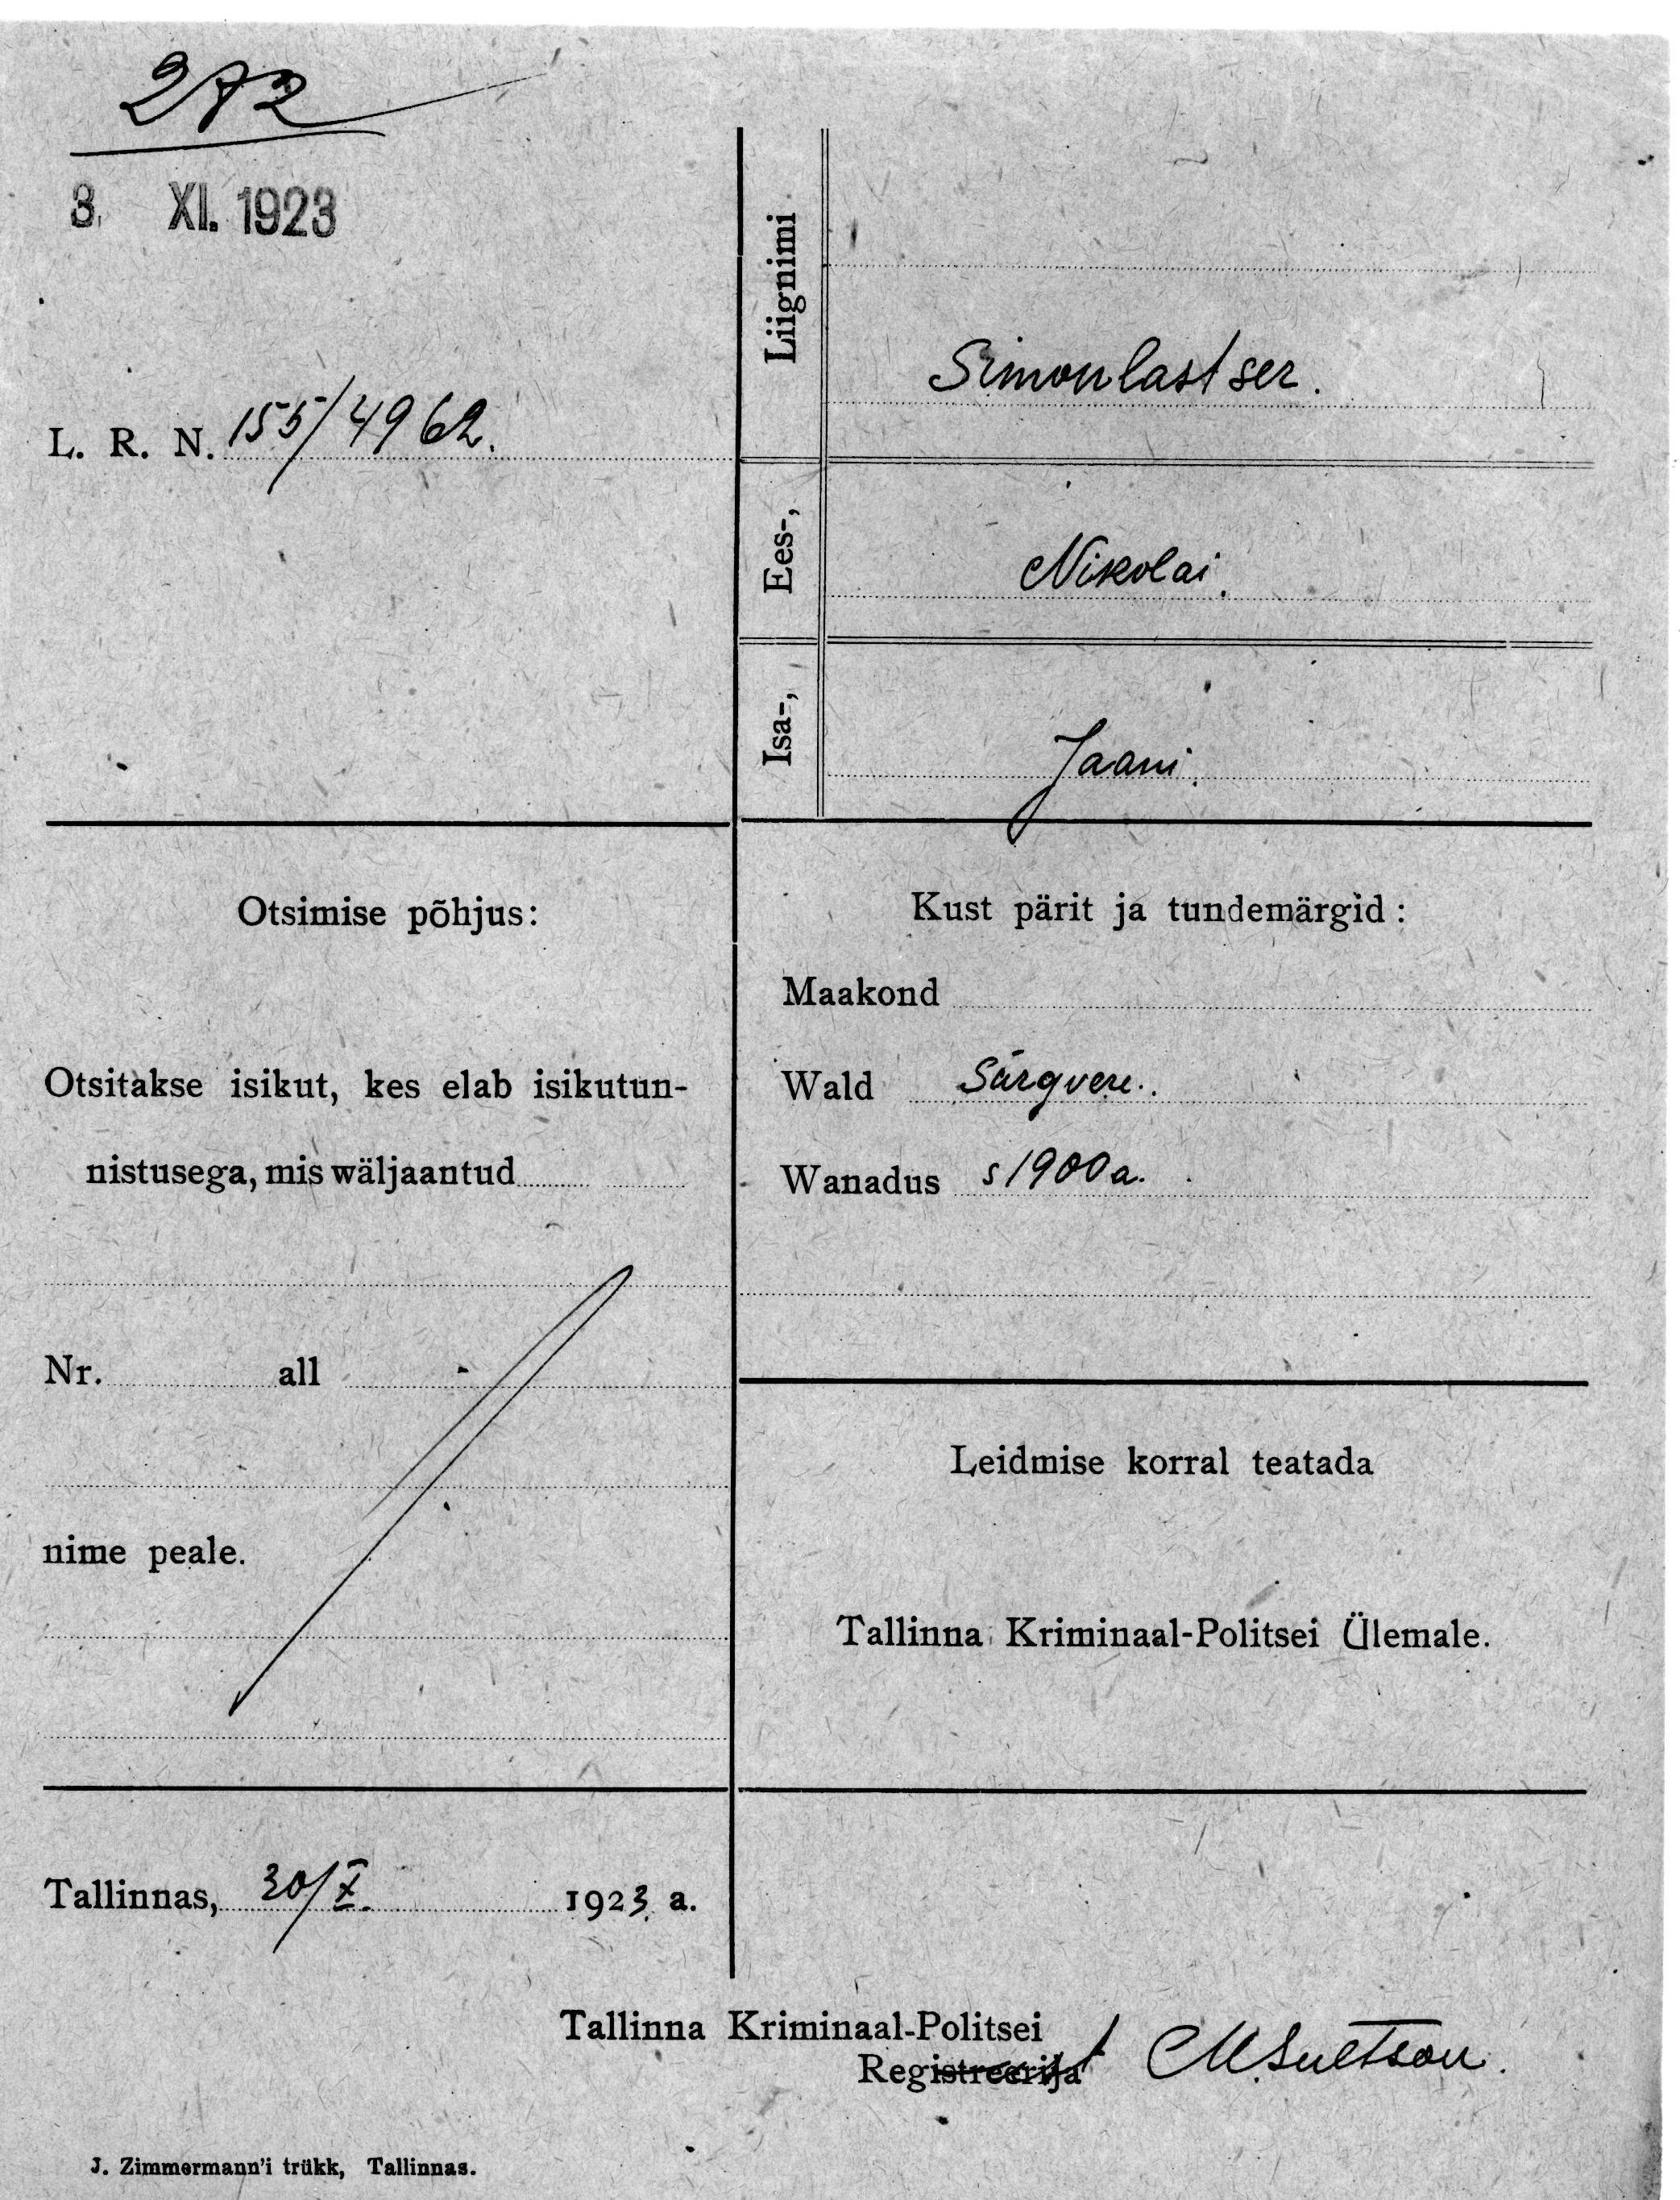 272
3. XI. 1923
L. R. N. 155/4962.
Liignimi
Simonlastser.
Ees-,
Nikolai.
Isa-,
Jaani.
Otsimise põhjus:
Otsitakse isikut, kes elab isikutun-
nistusega, mis wäljaantud
Nr. all
nime peale.
Kust pärit ja tundemärgid:
Maakond
Wald Särgvere.
Wanadus s 1900 a.
Leidmise korral teatada
Tallinna Kriminaal-Politsei Ülemale.
Tallinnas, 30/X. 1923 a.
Tallinna Kriminaal-Politsei
Registreerija
J. Zimmermann'i trükk, Tallinnas.